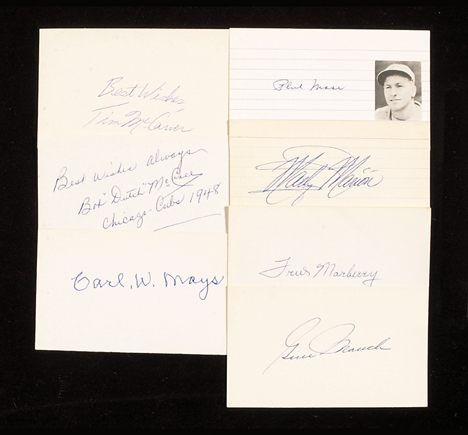 Best Wishes,
Tim McCarver
Best Wishes always
Bob "Dutch" McCall
Chicago Cubs 1948
Carl. W. Mays
Marty Marion
Firpo Marberry
Gus Mauch